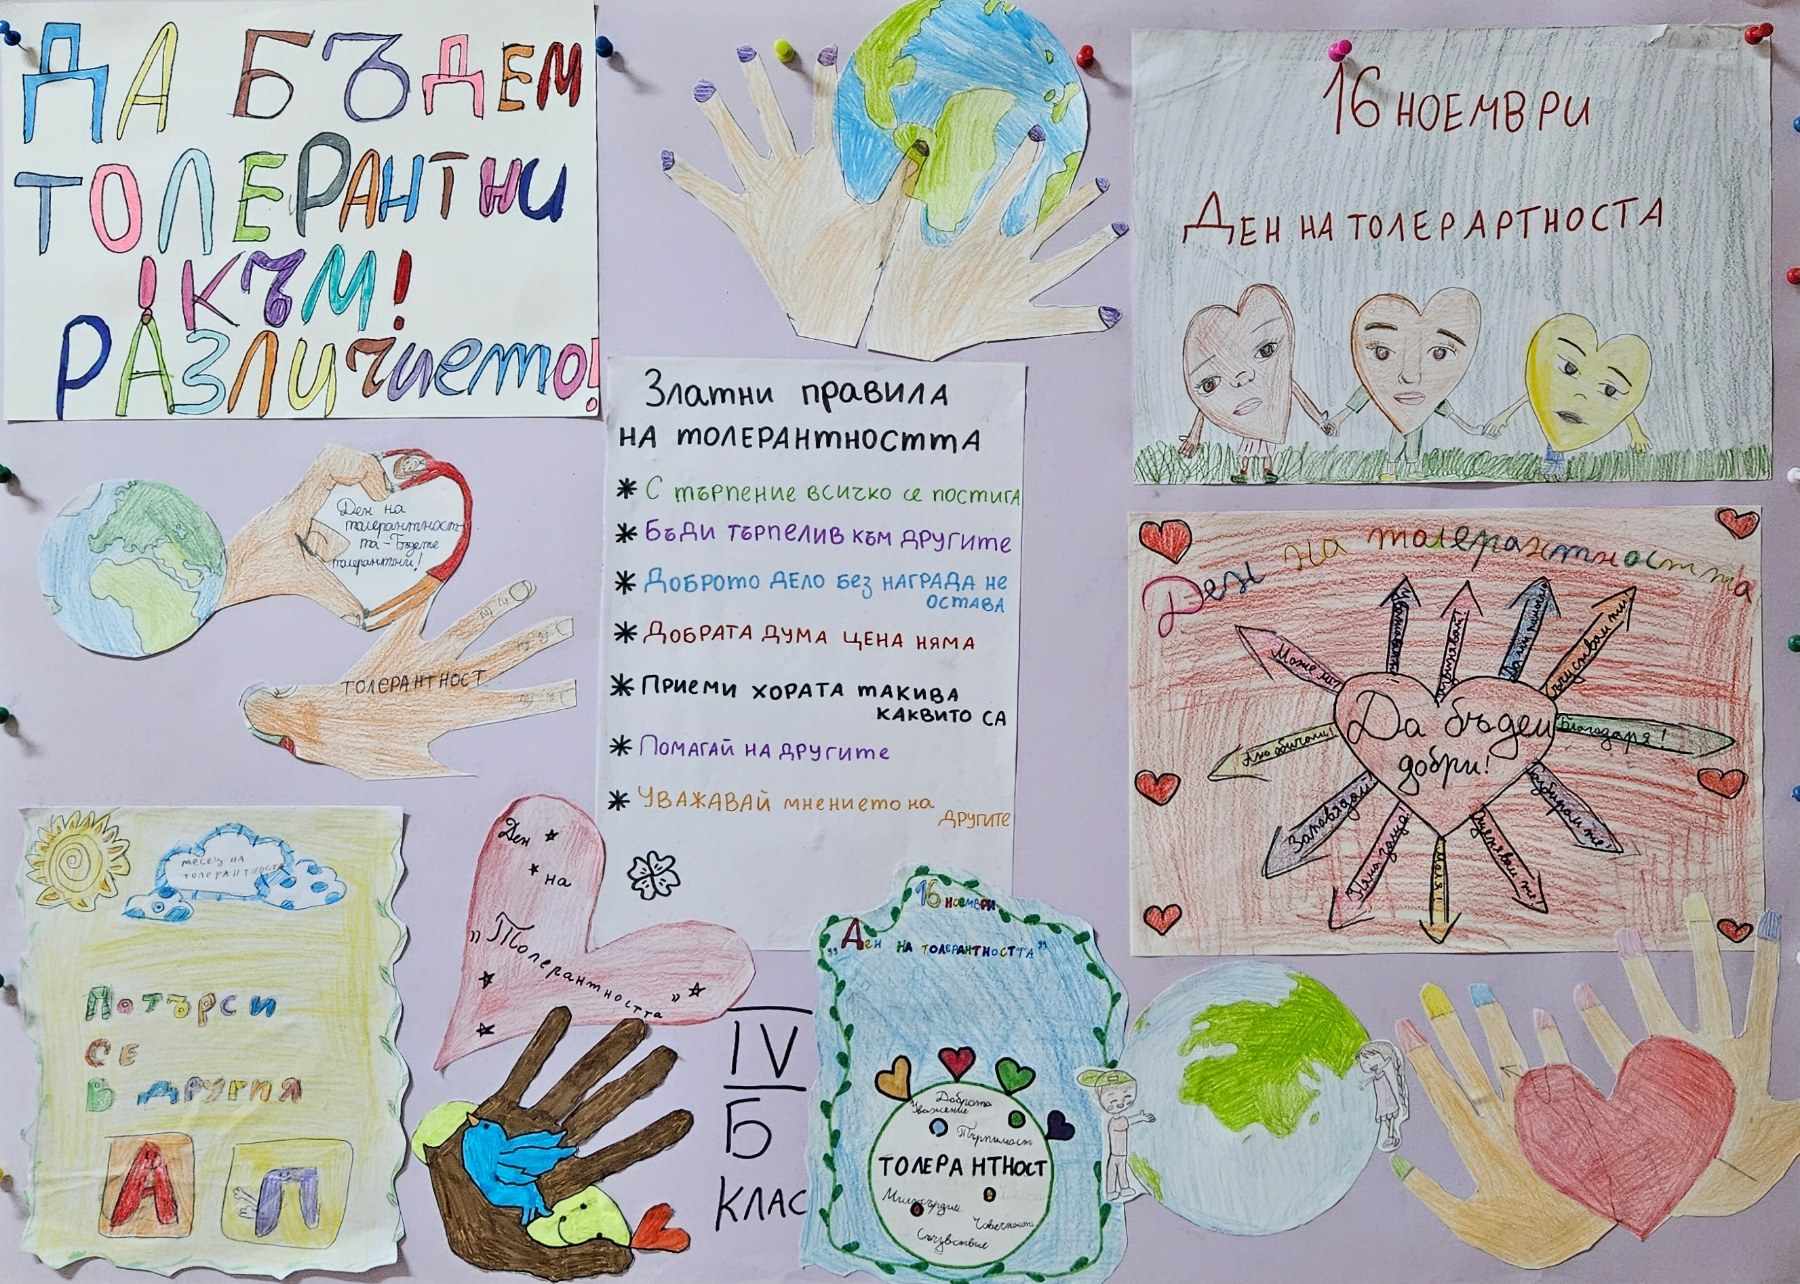 ДА БЪДЕМ
ТОЛЕРАНТНИ
!КЪМ!
РАЗЛИЧИЕТО!
16 НОЕМВРИ
ДЕН НА ТОЛЕРАРТНОСТА
Златни правила
на толерантността
* С търпение всичко се постига
* Бъди търпелив към другите
* Доброто дело без награда не
остава
* Добрата дума цена няма
* Приеми хората такива
каквито са
* Помагай на другите
* Уважавай мнението на
другите
Ден на
толерантност
та - Бъдете
толерантни!
ТОЛЕРАНТНОСТ
Ден на толерантността
Да бъдем
добри!
Може ли
Съчувствам ти
Благодаря!
Разбирам те
Моля
Няма защо
Заповядай
месец на
толерантността
Потърси
се
в другия
А
Л
Ден
на
"Толерантността"
IV
Б
КЛАС
16 ноември
"Ден на толерантността"
Доброта
Уважение
Търпимост
ТОЛЕРАНТНОСТ
Милосърдие
Човечност
Съчувствие